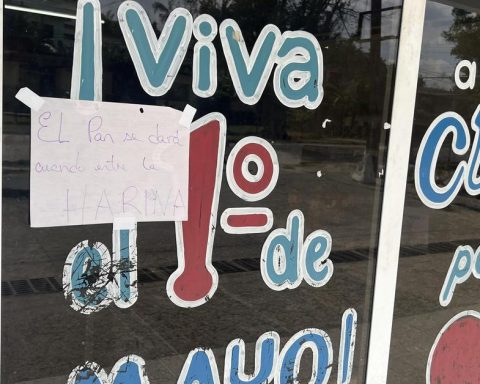 ¡Viva
EL Pan se dará
cuando entre la
HARINA
1º
al de
MAYO!
a